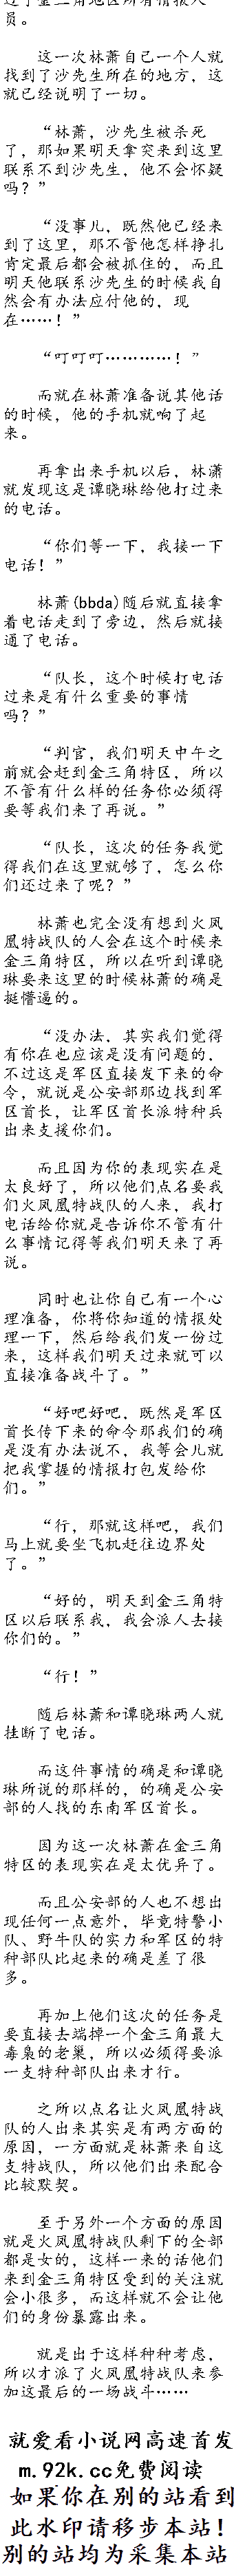 员。
这一次林萧自己一个人就
找到了沙先生所在的地方，这
就已经说明了一切。
“林萧，沙先生被杀死
了，那如果明天拿突来到这里
联系不到沙先生，他不会怀疑
吗？”
“没事儿，既然他已经来
到了这里，那不管他怎样挣扎
肯定最后都会被抓住的，而且
明天他联系沙先生的时候我自
然会有办法应付他的，现
在……！”
“叮叮叮…………！”
而就在林萧准备说其他话
的时候，他的手机就响了起
来。
再拿出来手机以后，林潇
就发现这是谭晓琳给他打过来
的电话。
“你们等一下，我接一下
电话！”
林萧(bbda)随后就直接拿
着电话走到了旁边，然后就接
通了电话。
“队长，这个时候打电话
过来是有什么重要的事情
吗？”
“判官，我们明天中午之
前就会赶到金三角特区，所以
不管有什么样的任务你必须得
要等我们来了再说。”
“队长，这次的任务我觉
得我们在这里就够了，怎么你
们还过来了呢？”
林萧也完全没有想到火凤
凰特战队的人会在这个时候来
金三角特区，所以在听到谭晓
琳要来这里的时候林萧的确是
挺懵逼的。
“没办法，其实我们觉得
有你在也应该是没有问题的，
不过这是军区直接发下来的命
令，就说是公安部那边找到军
区首长，让军区首长派特种兵
出来支援你们。
而且因为你的表现实在是
太良好了，所以他们点名要我
们火凤凰特战队的人来，我打
电话给你就是告诉你不管有什
么事情记得等我们明天来了再
说。
同时也让你自己有一个心
理准备，你将你知道的情报处
理一下，然后给我们发一份过
来，这样我们明天过来就可以
直接准备战斗了。”
“好吧好吧，既然是军区
首长传下来的命令那我们的确
是没有办法说不，我等会儿就
把我掌握的情报打包发给你
们。”
“行，那就这样吧，我们
马上就要坐飞机赶往边界处
了。”
“好的，明天到金三角特
区以后联系我，我会派人去接
你们的。”
“行！”
随后林萧和谭晓琳两人就
挂断了电话。
而这件事情的确是和谭晓
琳所说的那样的，的确是公安
部的人找的东南军区首长。
因为这一次林萧在金三角
特区的表现实在是太优异了。
而且公安部的人也不想出
现任何一点意外，毕竟特警小
队、野牛队的实力和军区的特
种部队比起来的确是差了很
多。
再加上他们这次的任务是
要直接去端掉一个金三角最大
毒枭的老巢，所以必须得要派
一支特种部队出来才行。
之所以点名让火凤凰特战
队的人出来其实是有两方面的
原因，一方面就是林萧来自这
支特战队，所以他们出来配合
比较默契。
至于另外一个方面的原因
就是火凤凰特战队剩下的全部
都是女的，这样一来的话他们
来到金三角特区受到的关注就
会小很多，而这样就不会让他
们的身份暴露出来。
就是出于这样种种考虑，
所以才派了火凤凰特战队来参
加这最后的一场战斗……
就爱看小说网高速首发
m.92k.cc免费阅读
如果你在别的站看到
此水印请移步本站！
别的站均为采集本站